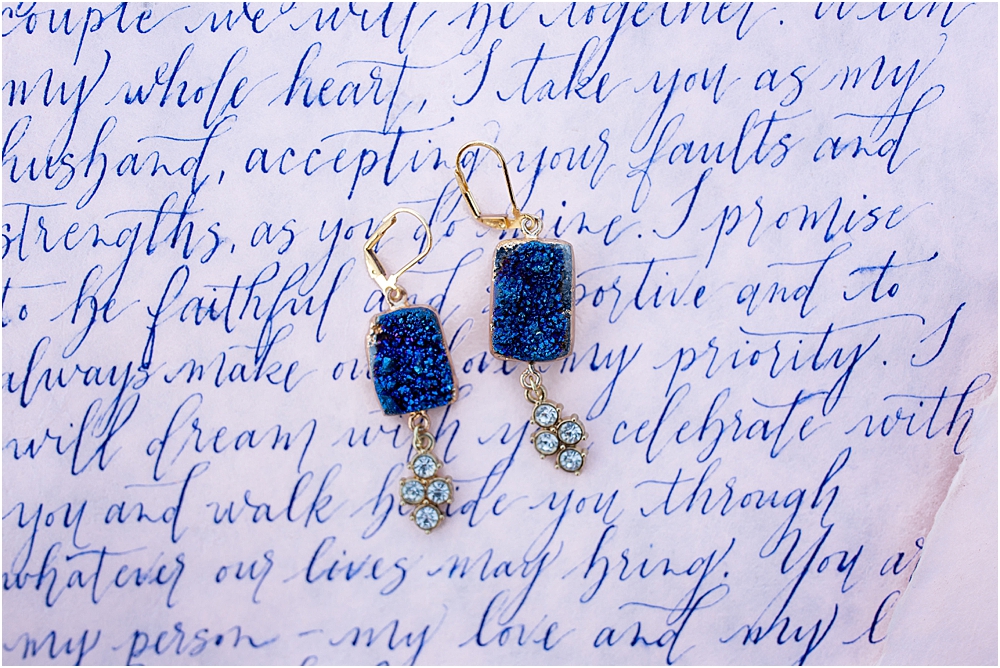 couple we will be together. With
my whole heart, I take you as my
husband, accepting your faults and
strengths, as you do mine. I promise
to be faithful and supportive and to
always make our love my priority. I
will dream with you celebrate with
you and walk beside you through
whatever our lives may bring. You ar
my person - my love and my l